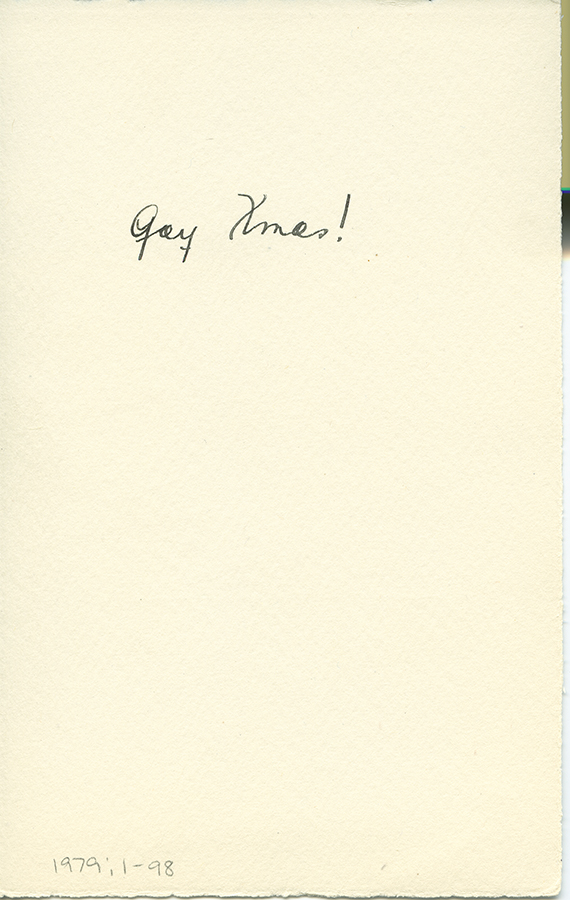 Gay Xmas!
1979;1-98